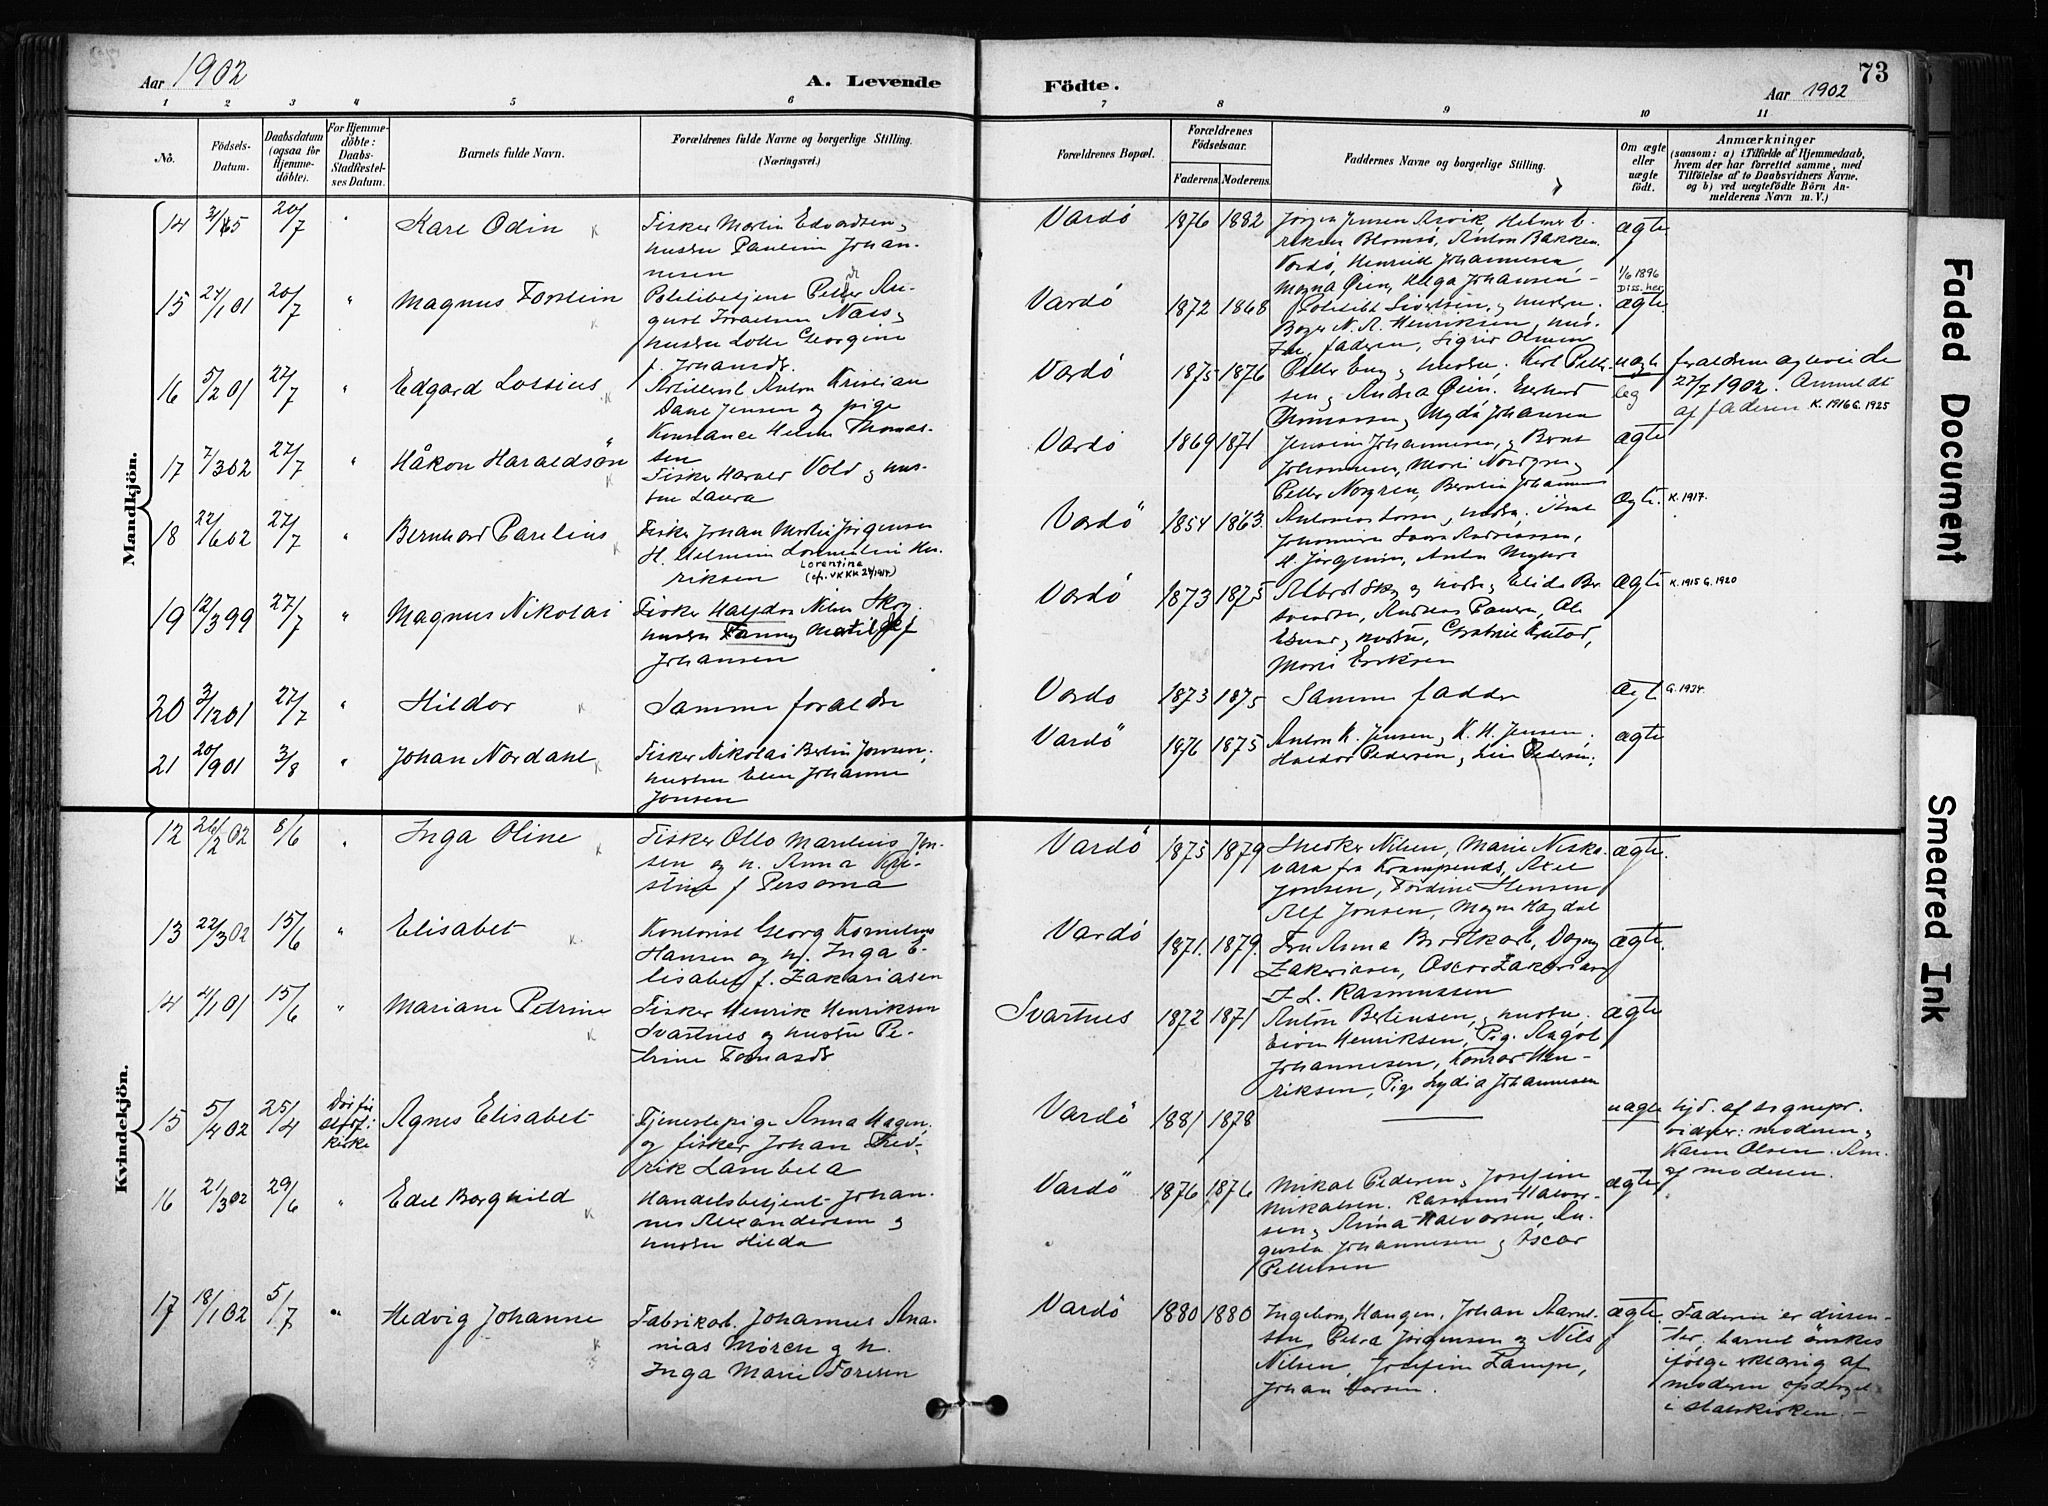 Aar 1902
A. Levende
Födte.
Aar 1902
73
1 2 3 4 5 6 7 8 9 10 11
No.
Födsels-
Datum.
Daabsdatum
(ogsaa for
Hjemme-
döbte).
For Hjemme-
döbte:
Daabs-
Stadfæstel-
ses Datum.
Barnets fulde Navn.
Forældrenes fulde Navne og borgerlige Stilling.
(Næringsvei.)
Forældrenes Bopæl.
Forældrenes
Födselsaar.
Faderens. Moderens.
Faddernes Navne og borgerlige Stilling.
Om ægte
eller
uægte
födt.
Anmærkninger
(saasom: a) i Tilfælde af Hjemmedaab,
hvem der har forrettet samme, med
Tilföielse af to Daabsvidners Navne.
og b) ved uægtefödte Börn An-
melderens Navn m. V.)
Mandkjön.
14 20/7 " Kare Odin
Fisker Martin Edvardsen,
hustru Paulina Johan-
nesen
Vardö 1876 1882
Jörgen Jensen Arvik, Helmer E-
riksen Blomsö, Anton Bakken
Vardö, Henrik Johannesen
Magna Öien, Helga Johansen
ægte
15 24/1 01 20/7 " Magnus Torstein
Politibetjent Peder Au-
gust Israelsen Næss,
hustru Lotte Georgine
f. Johansdr.
Vardö 1872 1868
Politibt Sivertsen, hustru.
Boger N. A. Henriksen, hus-
tru, faderen, Sigrid Olsen
1/6 1896
Diss. her.
ægte
16 5/2 01 27/7 " Edgard Lossius
Artillerist Anton Kristian
Dane Jensen og pige
Konstance Helene Thomas-
sen
Vardö 1875 1876
Petter Eng og hustru. Karl Peter-
sen, Andrea Öien, Enevold
Thomassen, Magda Johansen
uægte
leg
forældrene ægteviede
27/7 1902. Anmeldt
af faderen K. 1916 G. 1925
17 7/3 02 27/7 " Håkon Haraldson
Fisker Harald Vold og hus-
tru Laura
Vardö 1869 1871
Jensine Johannesen, Bernt
Johannesen, Marie Nordgren,
Petter Norgren, Berntin Johannesen
ægte
18 22/6 02 27/7 " Bernhard Parelius
Fisker Johan Martin Jörgensen
H. Helmine Lorentine Hen-
riksen
Lorentina
Vardö 1854 1863.
Antonius Larsen, hustru.
Johannesen Laura Andreassen,
H. Jörgensen, Anton Myhre
ægte. K. 1917.
19 12/3 99 27/7 " Magnus Nikolai
Fisker Halfdan Nilsen Skog
hustru Fanny Matilde f
Johansen
Vardö 1873 1875
Albert Skog og hustru, Elida Ber-
svendsen, Andreas Paulsen, Ole
hustru,
Marie Eriksen
ægte K. 1915 G. 1920
20 3/12 01 27/7 " Hildor
Samme forældre
Vardö 1873 1875
Samme faddre
ægt G. 1934.
21 20/9 01 3/8 " Johan Nordahl
Fisker Nikolai Bertin Jensen,
hustru Elen Johanne
Jonsen
Vardö 1876 1875
Anton K. Jensen, K. H. Jensen,
Haldor Pedersen, Lin Pedersen,
ægte
Kvindekjön.
12 26/2 02 8/6 " Inga Oline
Fisker Otto Marelius Jon-
sen og h. Anna Kri-
stine f Persdtr
Vardö 1875 1879
Snedker Nilsen, Marie Niska-
vara fra Krampenæs, Axel
Jonsen, Fordine Hensen
Alf Jonsen, Magna Hagdal
ægte.
13 22/3 02 15/6 " Elisabet
Kontorist Georg Kornelius
Hansen og h. Inga E-
lisabet f. Zakariasen
Vardö 1871. 1879.
Fru Anna Brodtkorb, Dagny
Zakariasen, Oscar Zakariasen
L. Rasmussen
ægte.
4 4/1 01 15/6 " Mariane Petrine
Fisker Henrik Henriksen
Svartnes og hustru Pe-
trine Tomasdr
Svartnes 1872 1871
Anton Bertensen, hustru.
Henriksen, Pig. Aagot
Johannesen, Konrad Hen-
riksen, Pige Lydia Johannesen
ægte
15 5/4 02 25/4
kirke
Agnes Elisabet
Tjenestepige Anna Hagen
og fisker Johan Fred-
rik Lambela
Vardö 1881 1878
uægte
hjd. af sognepr.
vidner: moderen,
Karen Olsen. Anm.
af moderen.
16 21/3 02 29/6 " Edel Borghild
Handelsbetjent Johan-
nes Alexandersen og
hustru Hilda
Vardö 1876 1876
Mikal Pedersen, Josefine
Mikalsen. Rasmus Halvor-
sen, Anna Halvorsen, Au-
gusta Johannesen og Oscar
Pettersen
ægte
17 18/1 02 5/7 " Hedvig Johanne
Fabrikarb. Johannes Ana-
nias Mören og h.
Inga Marie Toresen
Vardö 1880 1880
Ingeborg Haugen, Johan Aarnt-
sen Petra Jörgensen og Nils
Nilsen, Josefine Lampe,
Johan Larsen.
ægte.
Faderen er dissen-
ter, barnet önskes
ifölge erklæring af
moderen opdraget
i statskirken. –
Faded Document
Smeared Ink